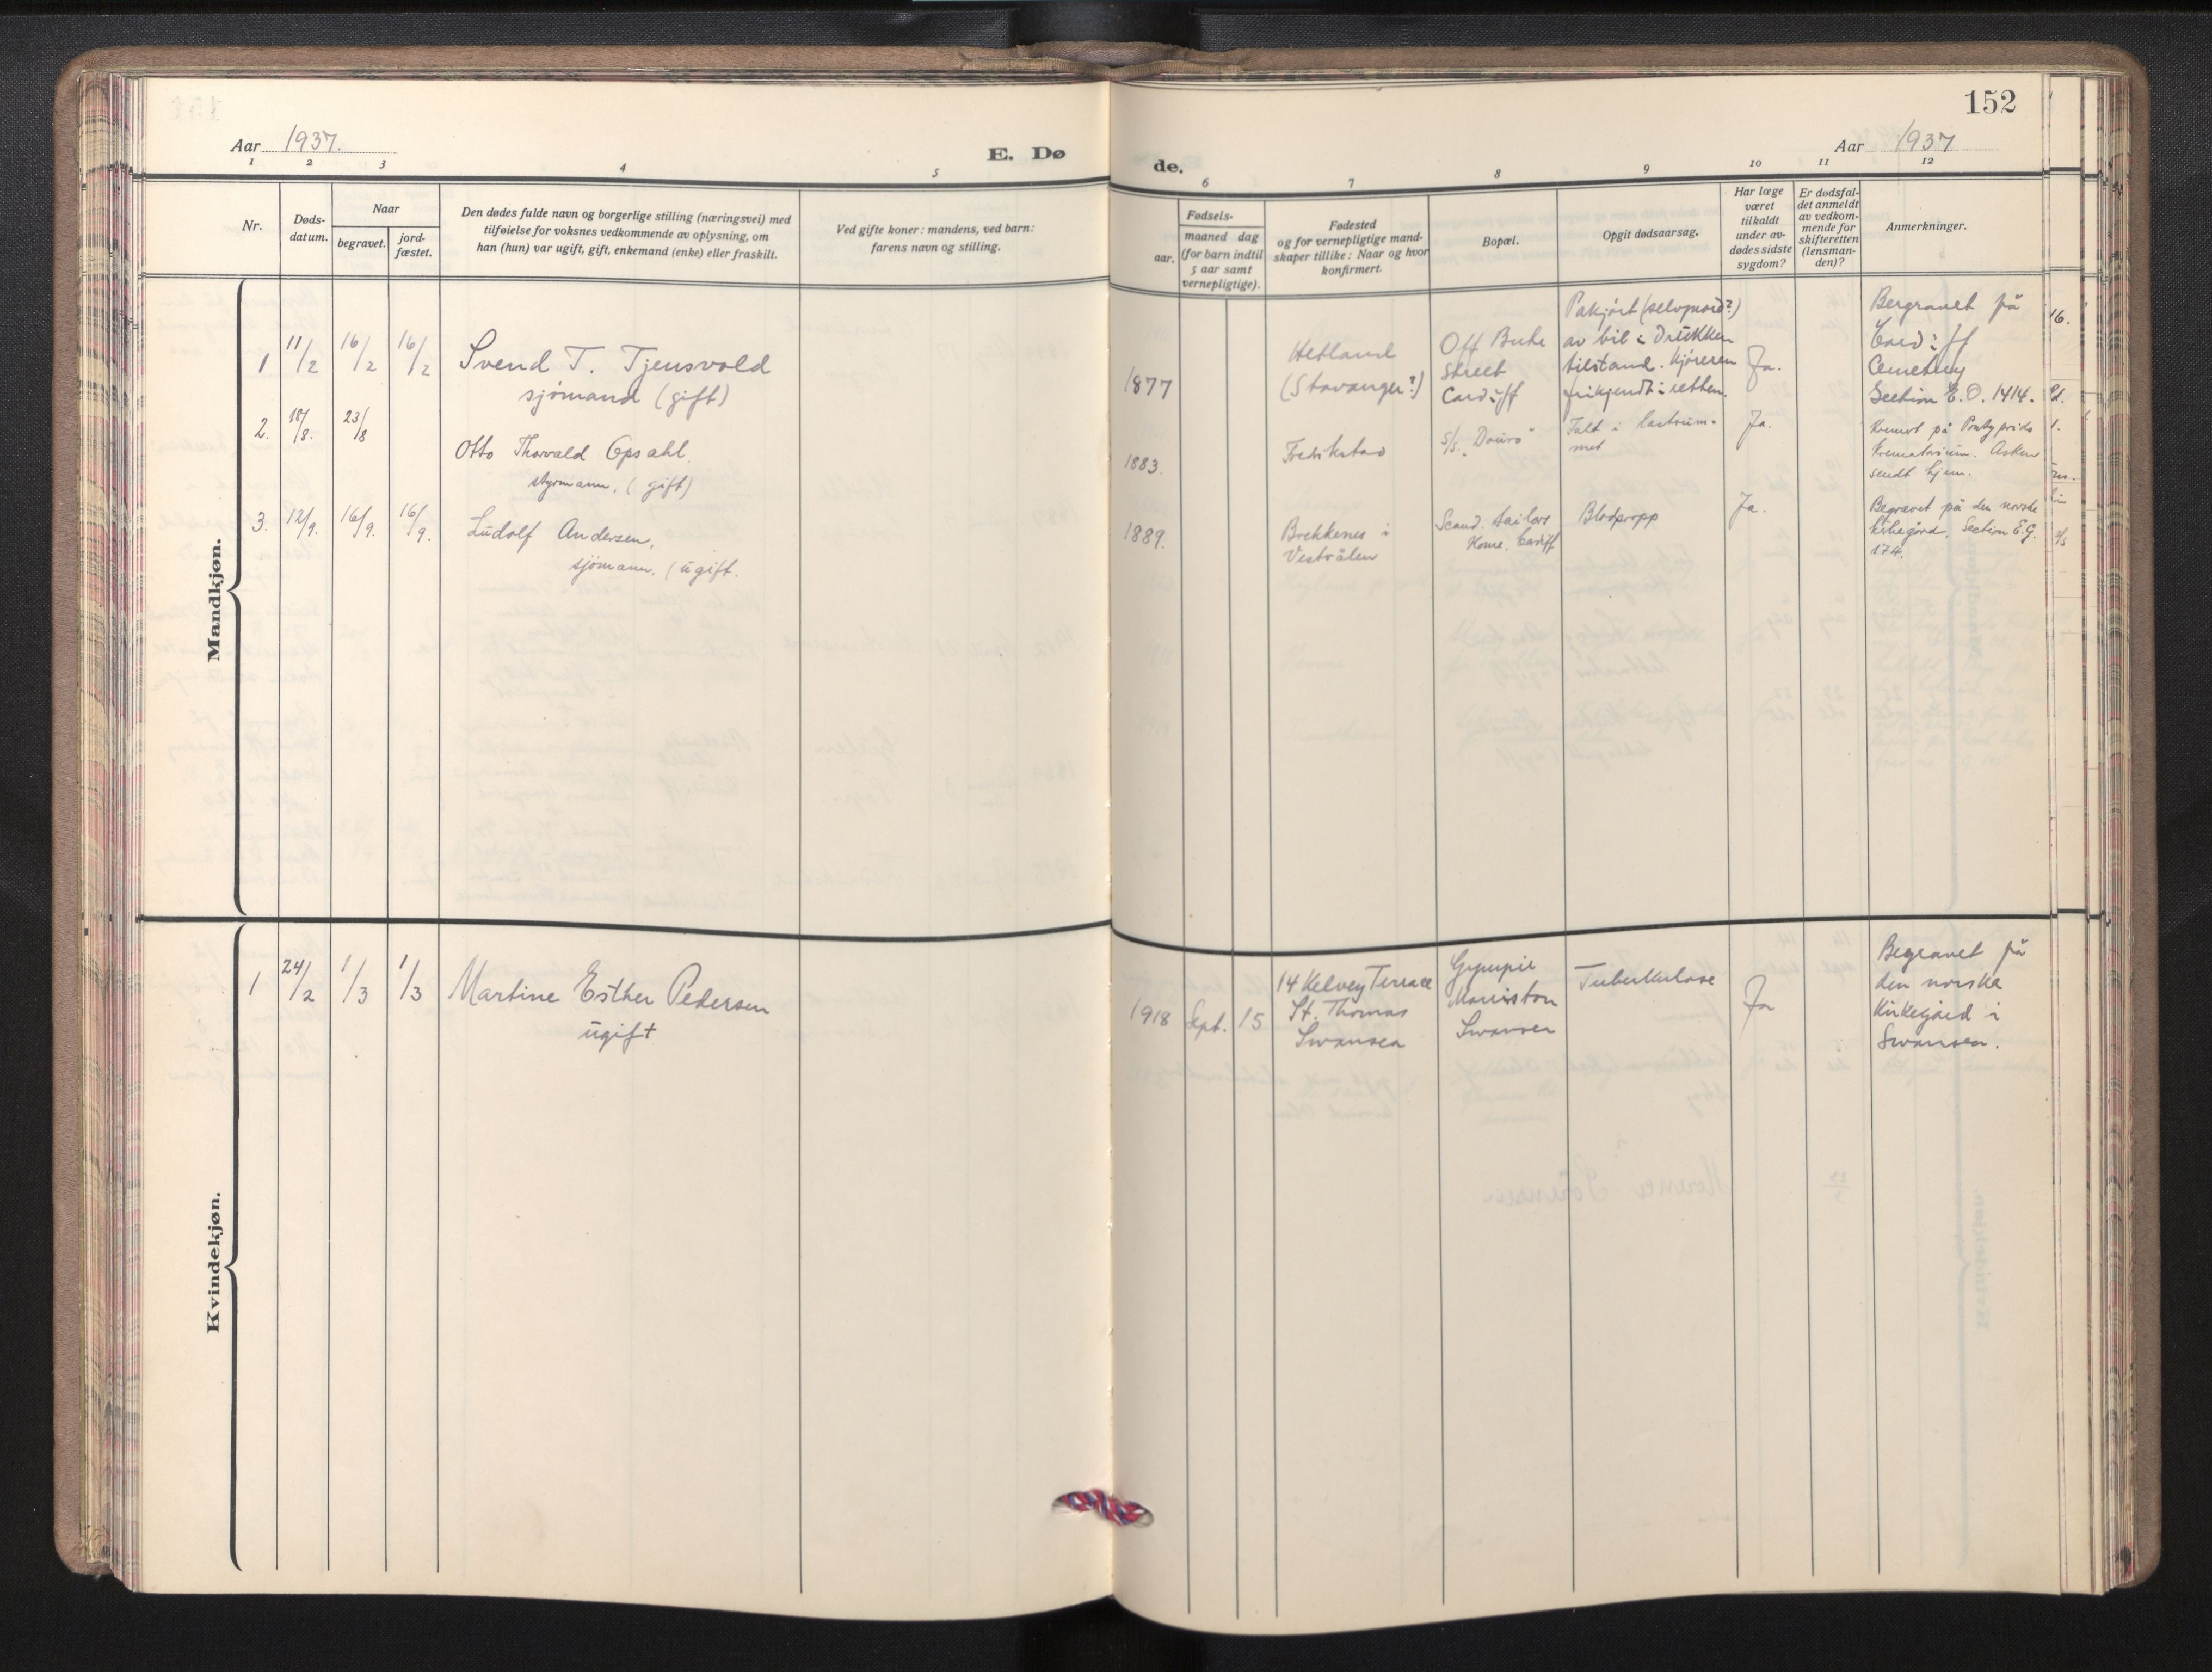 152
Aar 1937.
E. Dø
de.
Aar 1937
1 2 3 4 5 6 7 8 9 10 11 12
Nr.
Døds-
datum.
Naar
begravet.
jord-
fæstet.
Den dødes fulde navn og borgerlige stilling (næringsvei) med
tilføielse for voksnes vedkommende av oplysning, om
han (hun) var ugift, gift, enkemand (enke) eller fraskilt.
Ved gifte koner: mandens, ved barn:
farens navn og stilling.
Fødsels-
aar.
maaned dag
(for barn indtil
5 aar samt
vernepligtige).
Fødested
og for vernepligtige mand-
skaper tillike: Naar og hvor
konfirmert.
Bopæl.
Opgit dødsaarsag.
Har læge
været
tilkaldt
under av-
dødes sidste
sygdom?
Er dødsfal-
det anmeldt
av vedkom-
mende for
skifteretten
(lensman-
den)?
Anmerkninger.
Mandkjøn.
1 11/2 16/2 16/2
Svend T. Tjensvold
sjömand (gift)
1877
Hetland
(Stavanger?)
Off Bute
Street
Cardiff
Påkjört (selvmord?)
av bil i Drukken
tilstand. Kjöreren
frikjendt i retten.
Ja.
Bergravet på
Cardiff
Cemetery
Section E.O. 1414.
2. 18/8. 23/8
Otto Thorvald Opsahl.
styrmann. (gift)
1883.
Fredrikstad
S/S. "Douro"
Falt i lastrum-
met
Ja.
Kremert på Pontypridd
Krematorium. Asken
sendt hjem.
3. 12/9. 16/9. 16/9.
Ludolf Andersen,
sjömann. (ugift.
1889.
Brekkenes i
Vesterålen
Scand. Sailors
Home. Cardiff
Blodpropp
Ja.
Begravet på den norske
kirkegård, Section E.G.
174.
Kvindekjøn.
1 24/2 1/3 1/3
Martine Esther Pedersen
ugift
1918 Sept. 15
14 Kelvey Terrace
St. Thomas
Swansea
Gympie
Morriston
Swansea
Tuberkulose
Ja
Begravet på
den norske
Kirkegård i
Swansea.